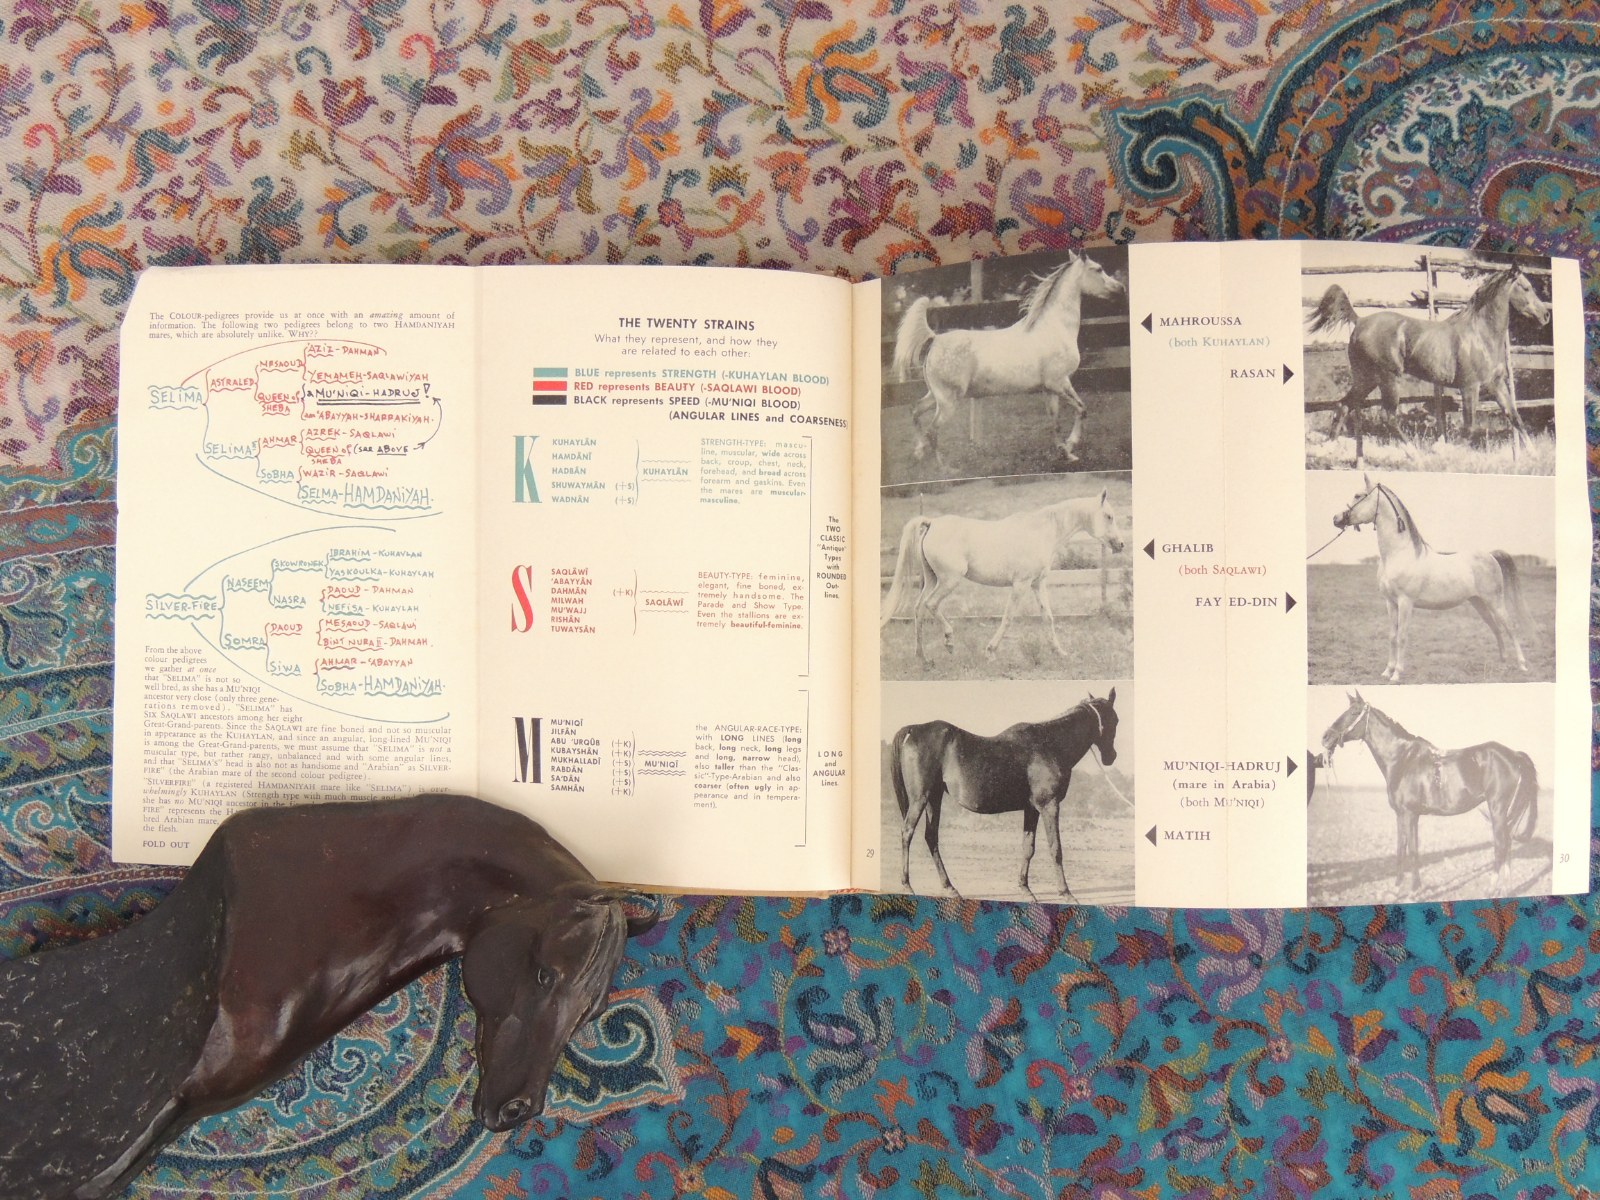 The COLOUR-pedigrees provide us at once with an amazing amount of
information. The following two pedigrees belong to two HAMDANIYAH
mares, which are absolutely unlike. WHY??
SELIMA
ASTRALED
MESAOUD
'AZIZ-DAHMAN
YEMAMEH-SAQLAWIYAH
QUEEN of
SHEBA
a MU'NIQI-HADRUJ!
an 'ABAYYAH-SHARRAKIYAH.
SELIMA
AHMAR
AZREK-SAQLAWI
QUEEN of (SEE ABOVE
SHEBA
SOBHA
WAZIR-SAQLAWI
SELMA-HAMDANIYAH.
SILVER-FIRE
NASEEM
SKOWRONEK
IBRAHIM-KUHAYLAN
YASKOULKA-KUHAYLAH
NASRA
DAOUD-DAHMAN
NEFISA-KUHAYLAH
SOMRA
DAOUD
MESAOUD-SAQLAWI
BINT NURA II-DAHMAH.
SIWA
AHMAR-'ABAYYAN
SOBHA-HAMDANIYAH.
From the above
colour pedigrees
we gather at once
that "SELIMA" is not so
well bred, as she has a MU'NIQI
ancestor very close (only three gene-
rations removed). "SELIMA" has
SIX SAQLAWI ancestors among her eight
Great-Grand-parents. Since the SAQLAWI are fine boned and not so muscular
in appearance as the KUHAYLAN, and since an angular, long-lined MU'NIQI
is among the Great-Grand-parents, we must assume that "SELIMA" is not a
muscular type, but rather rangy, unbalanced and with some angular lines,
and that "SELIMA'S" head is also not as handsome and "Arabian" as SILVER-
FIRE" (the Arabian mare of the second colour pedigree).
"SILVERFIRE" (a registered HAMDANIYAH mare like "SELIMA") is over-
whelmingly KUHAYLAN (Strength type with much muscle and
she has no MU'NIQI ancestor in the
FIRE" represents the
bred Arabian mare,
the flesh.
FOLD OUT
THE TWENTY STRAINS
What they represent, and how they
are related to each other:
BLUE represents STRENGTH (-KUHAYLAN BLOOD)
RED represents BEAUTY (-SAQLAWI BLOOD)
BLACK represents SPEED (-MU'NIQI BLOOD)
(ANGULAR LINES and COARSENESS)
K
KUHAYLĀN
HAMDĀNĪ
HADBĀN
SHUWAYMĀN (+S)
WADNĀN (+S)
KUHAYLĀN
STRENGTH-TYPE: mascu-
line, muscular, wide across
back, croup, chest, neck,
forehead, and broad across
forearm and gaskins. Even
the mares are muscular-
masculine.
S
SAQLĀWĪ
'ABAYYĀN
DAHMĀN (+K)
MILWAH
MU'WAJJ
RISHĀN
TUWAYSĀN
SAQLĀWĪ
BEAUTY-TYPE: feminine,
elegant, fine boned, ex-
tremely handsome. The
Parade and Show Type.
Even the stallions are ex-
tremely beautiful-feminine.
The
TWO
CLASSIC
"Antique"
Types
with
ROUNDED
Out-
lines.
M
MU'NIQĪ
JILFĀN
ABU 'URQŪB (+K)
KUBAYSHĀN (+K)
MUKHALLADĪ (+S)
RABDĀN (+S)
SA'DĀN (+S)
SAMHĀN (+K)
MU'NIQĪ
the ANGULAR-RACE-TYPE:
with LONG LINES (long
back, long neck, long legs
and long, narrow head),
also taller than the "Clas-
sic"-Type-Arabian and also
coarser (often ugly in ap-
pearance and in tempera-
ment).
LONG
and
ANGULAR
Lines.
29
MAHROUSSA
(both KUHAYLAN)
RASAN
GHALIB
(both SAQLAWI)
FAY ED-DIN
MU'NIQI-HADRUJ
(mare in Arabia)
(both MU'NIQI)
MATIH
30